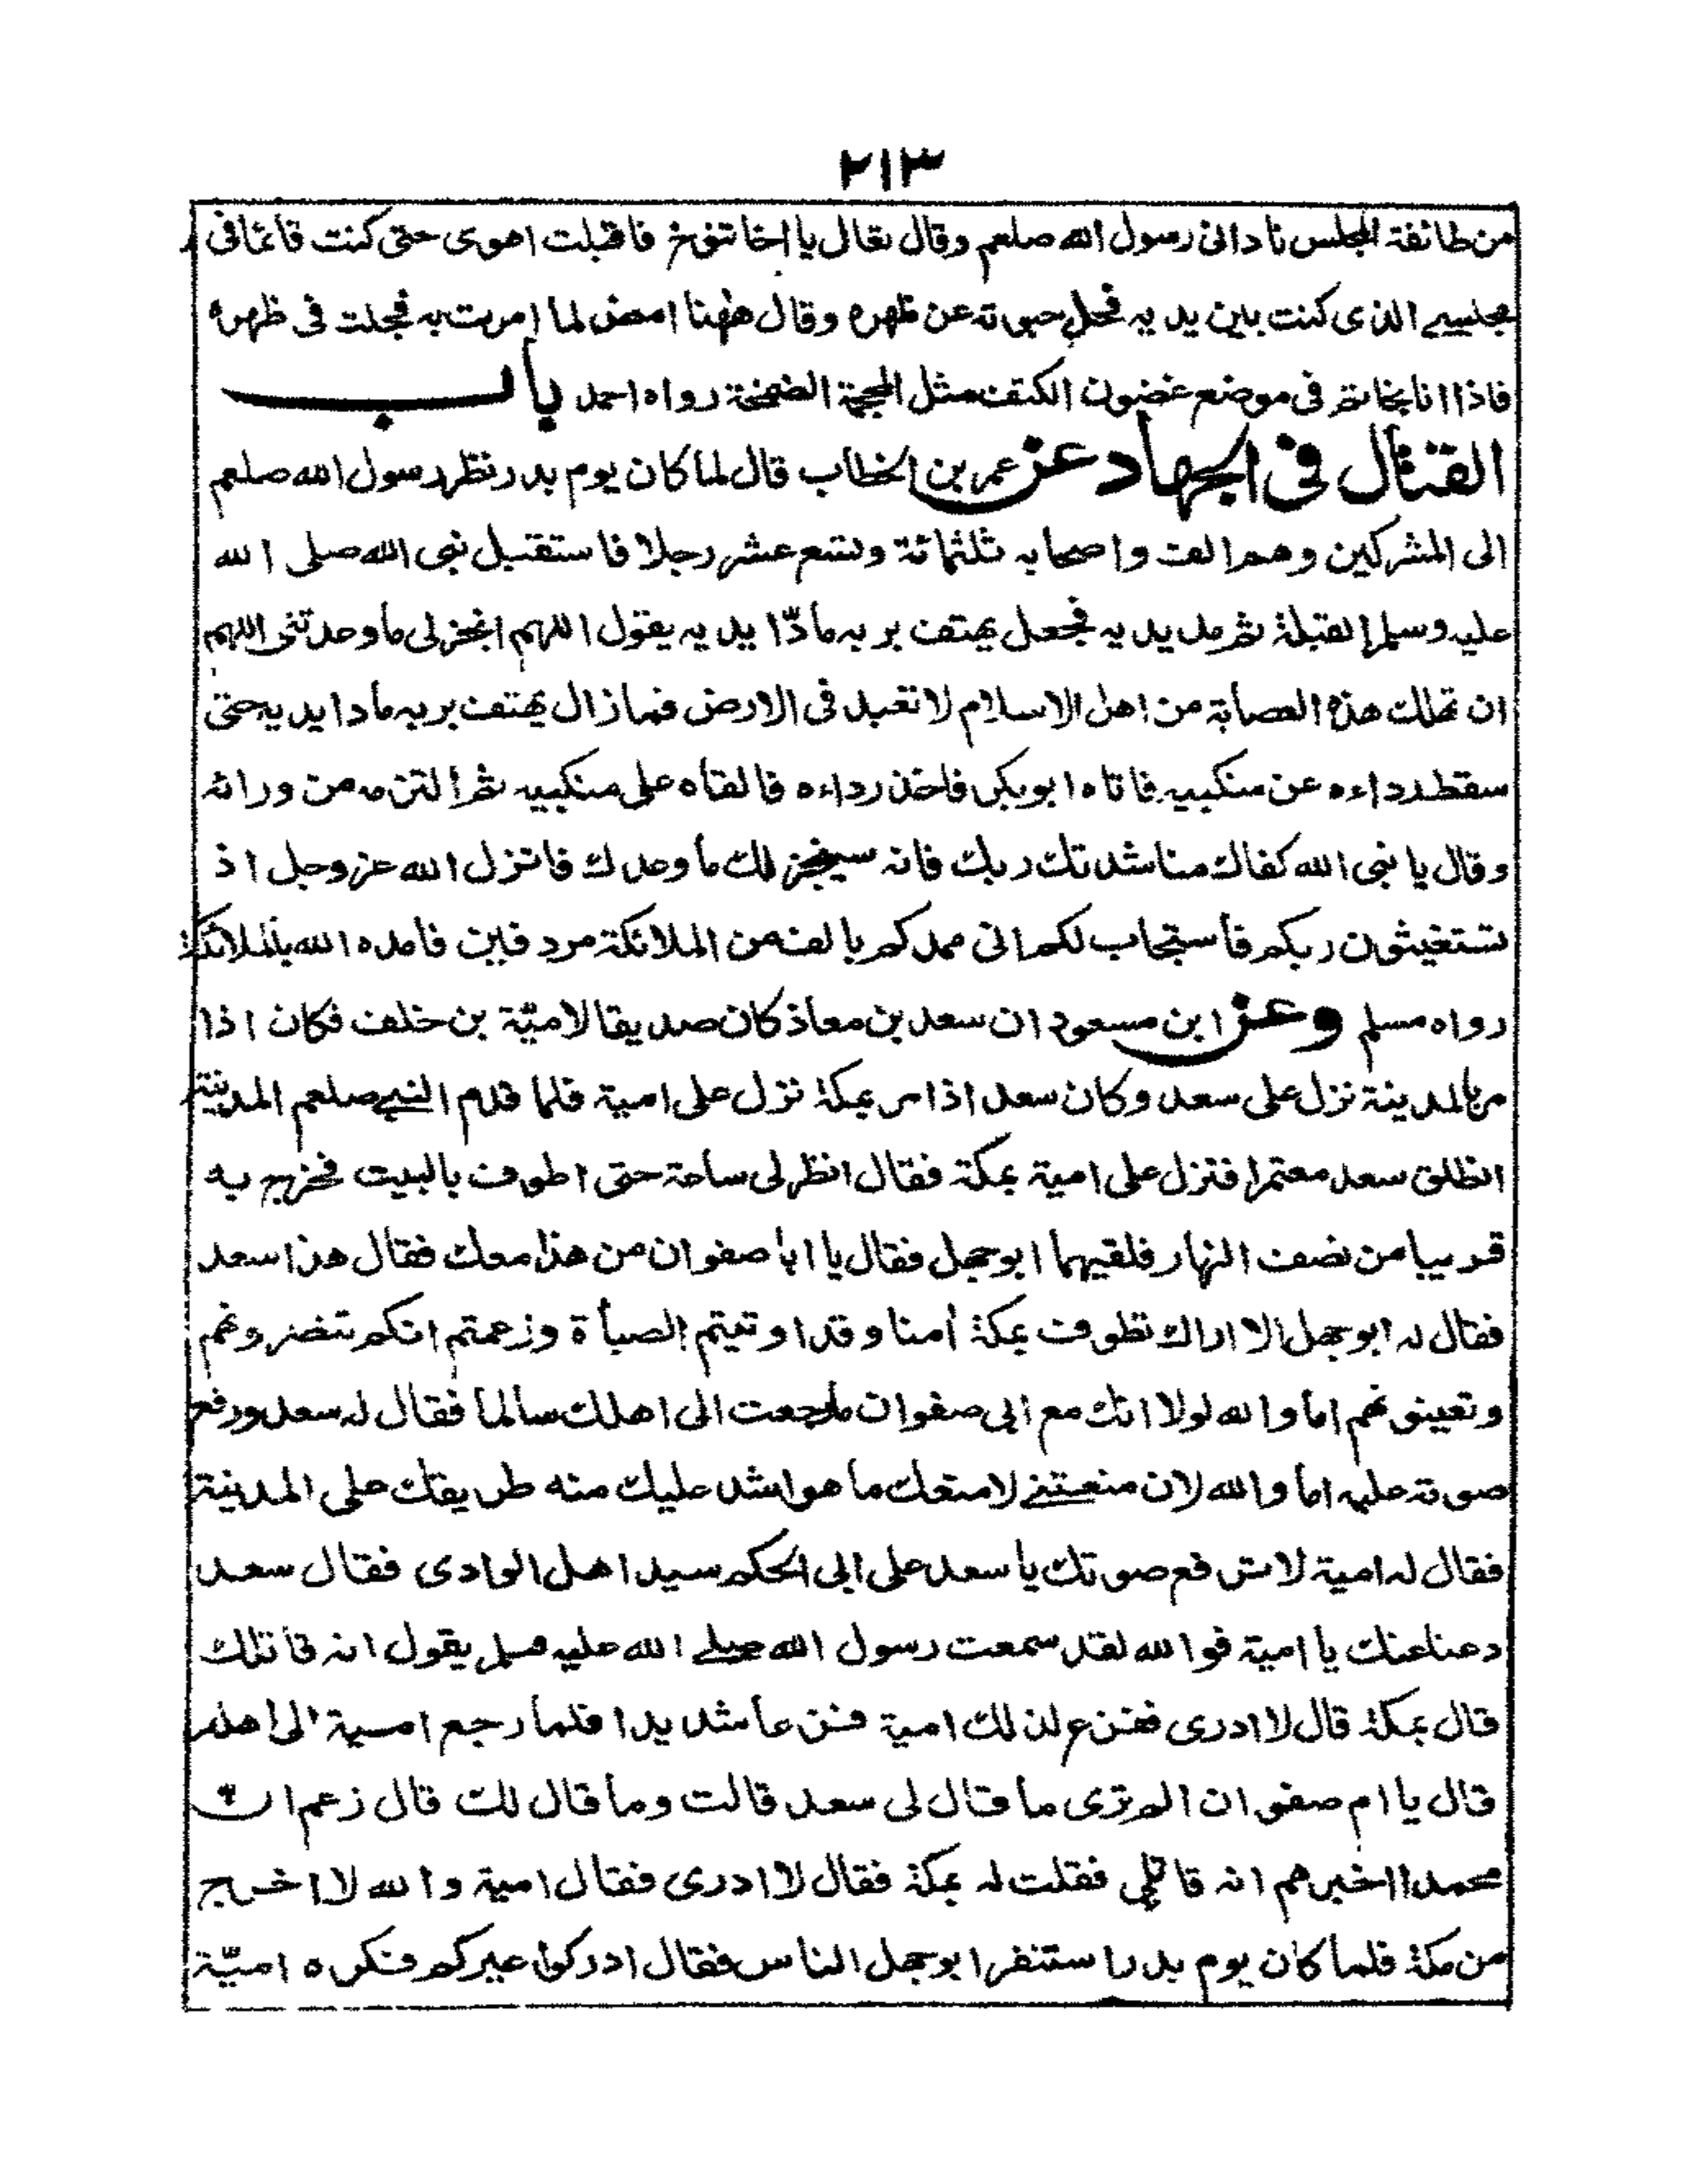 ٢١٣
من طائفة المجلس نادانى رسول الله صلعم وقال تعال يا اخا تنوخ فاقبلت اهوى حتى كنت قائما فى
مجلسى الذى كنت بين يديه فحل حبوته عن ظهره وقال ههنا امض لما امرت به فجلت فى ظهره
فاذا انا بخاتم فى موضع غضون الكتف مثل المحجمة الضخمة رواه احمد باب
القتال فى الجهاد عن عمر بن الخطاب قال لما كان يوم بدر نظر رسول الله صلعم
الى المشركين وهم الف واصحابه ثلثمائة وتسع عشر رجلا فاستقبل نبى الله صلى الله
عليه وسلم القبلة ثم مد يديه فجعل يهتف بربه مادّا يديه يقول اللهم انجز لى ما وعدتنى اللهم
ان تهلك هذه العصابة من اهل الاسلام لا تعبد فى الارض فما زال يهتف بربه مادا يديه حتى
سقط رداءه عن منكبيه فاتاه ابو بكر فاخذ رداءه فالقاه على منكبيه ثم التزمه من ورائه
وقال يا نبى الله كفاك مناشدتك ربك فانه سينجز لك ما وعدك فانزل الله عز وجل اذ
تستغيثون ربكم فاستجاب لكم انى ممدكم بالف من الملائكة مردفين فامده الله بالملائكة
رواه مسلم وعن ابن مسعود ان سعد بن معاذ كان صديقا لاميّة بن خلف فكان اذا
مر بالمدينة نزل على سعد وكان سعد اذا مر بمكة نزل على امية فلما قدم النبى صلعم المدينة
انطلق سعد معتمرا فنزل على امية بمكة فقال انظر لى ساعة حتى اطوف بالبيت فخرج به
قريبا من نصف النهار فلقيهما ابو جهل فقال يا ابا صفوان من هذا معك فقال هذا سعد
فقال له ابو جهل الا اراك تطوف بمكة أمنا وقد اوتيتم الصبأة وزعمتم انكم تنصرونهم
وتعينونهم اما والله لولا انك مع ابى صفوان مارجعت الى اهلك سالما فقال له سعد ورفع
صوته عليه اما والله لان منعتنى لامنعك ما هو اشد عليك منه طريقك على المدينة
فقال له امية لا ترفع صوتك يا سعد على ابى الحكم سيد اهل الوادى فقال سعد
دعنا عنك يا امية فوالله لقد سمعت رسول الله صلى الله عليه وسلم يقول انه قاتلك
قال بمكة قال لا ادرى ففزع لذلك امية فزعا شديدا فلما رجع امية الى اهله
قال يا ام صفوان الم ترى ما قال لى سعد قالت وما قال لك قال زعم ان
محمدا اخبرهم انه قاتلى فقلت له بمكة فقال لا ادرى فقال امية والله لا اخرج
من مكة فلما كان يوم بدر استنفر ابو جهل الناس فقال ادركوا عيركم فكره اميّة